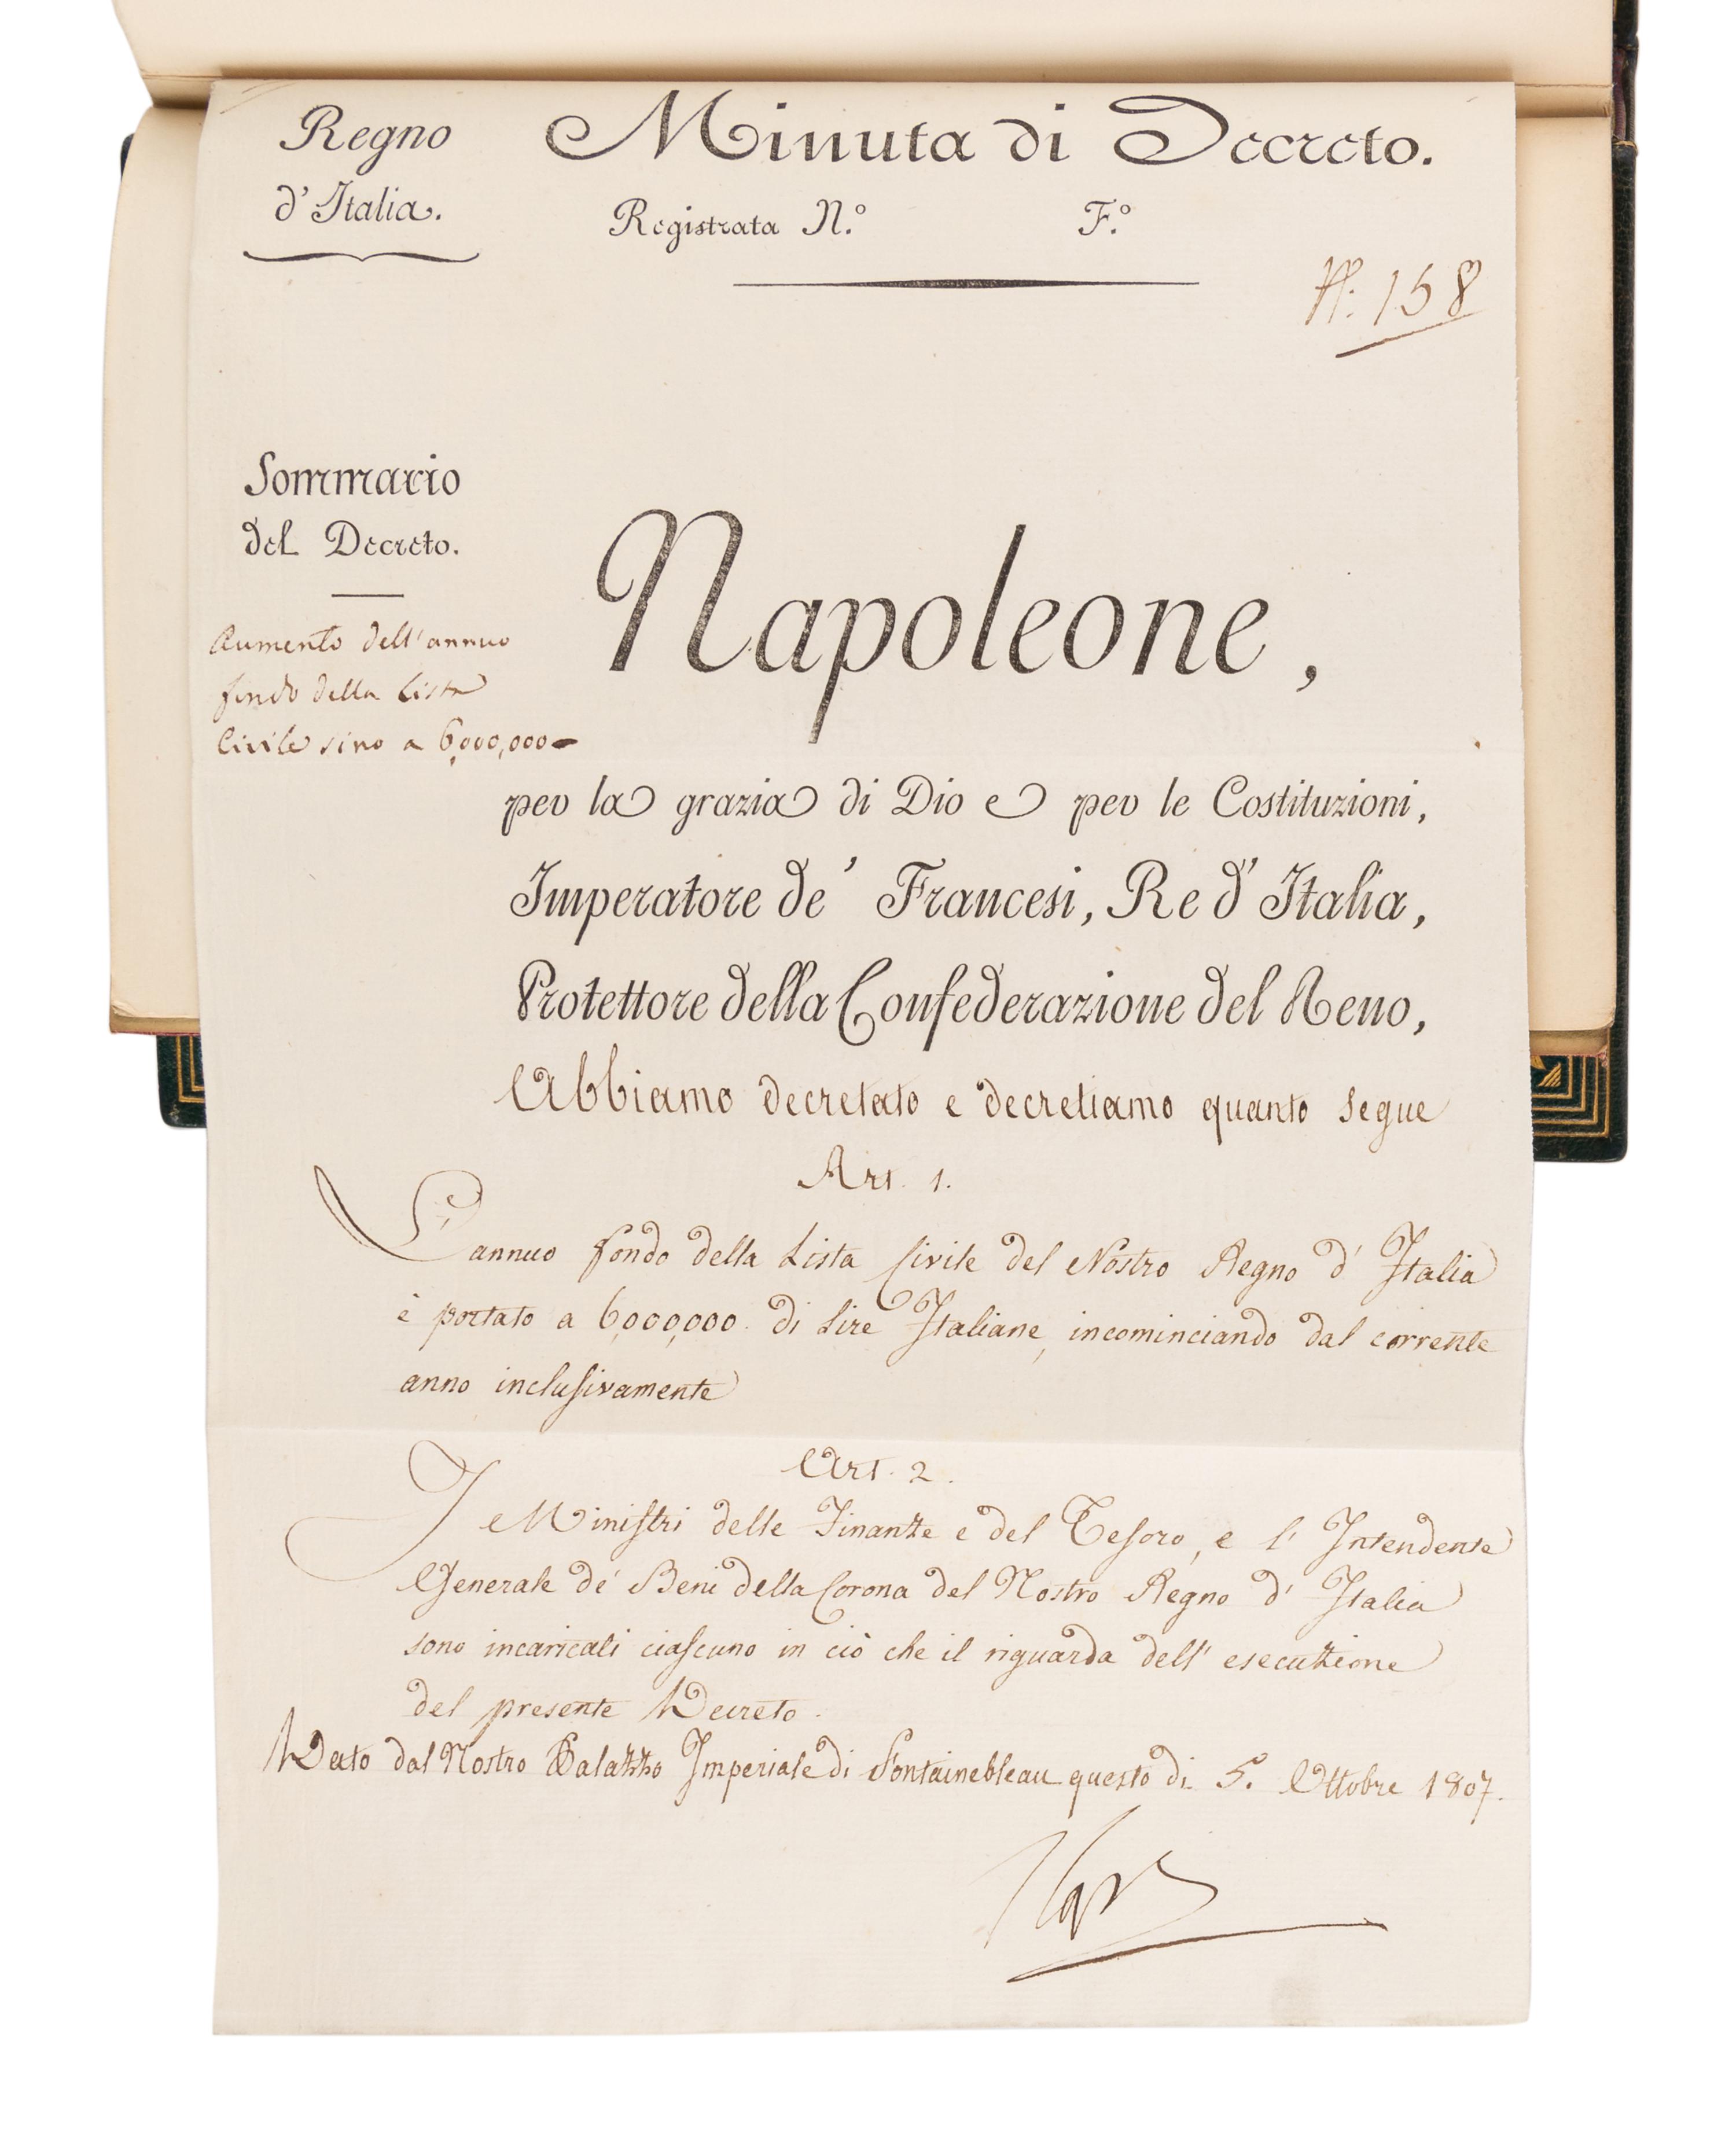 Regno
d'Italia.
Minuta di Decreto.
Registrata N.º F.º
Nº. 158
Sommario
del Decreto.
Aumento dell'annuo
fondo della Lista
Civile sino a 6,000,000
Napoleone,
per la grazia di Dio e per le Costituzioni,
Imperatore de' Francesi, Re d'Italia,
Protettore della Confederazione del Reno,
Abbiamo decretato e decretiamo quanto segue
Art. 1.
L'annuo fondo della Lista Civile del Nostro Regno d'Italia
è portato a 6,000,000. di Lire Italiane, incominciando dal corrente
anno inclusivamente
Art. 2.
I Ministri delle Finanze e del Tesoro, e l'Intendente
Generale de' Beni della Corona del Nostro Regno d'Italia
sono incaricati ciascuno in ciò che il riguarda dell'esecuzione
del presente Decreto.
Dato dal Nostro Palazzo Imperiale di Fontainebleau questo dì 5. Ottobre 1807.